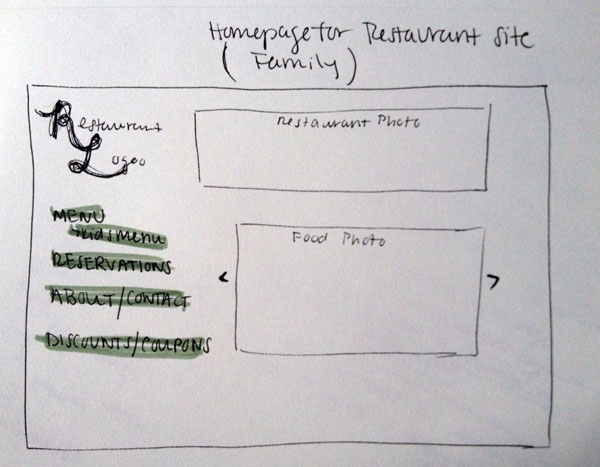 Homepage for Restaurant Site
(Family)
Restaurant
Logo
Restaurant Photo
MENU
kids menu
RESERVATIONS
ABOUT/CONTACT
DISCOUNTS/COUPONS
Food Photo
< >